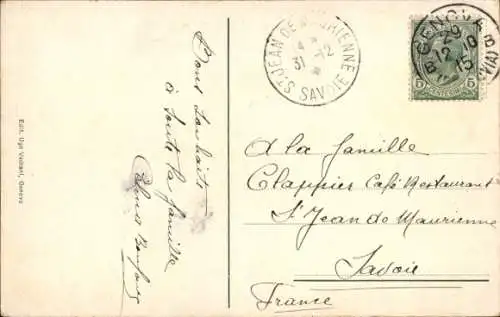 Edit. Ugo Vedrani, Genova
Bons souhaits
à toute la famille
St JEAN DE MAURIENNE
31 - 12
SAVOIE
GENOVA
29
12
15
5 5
A la famille
Clappier Café Restaurant
St Jean de Maurienne
Savoie
France